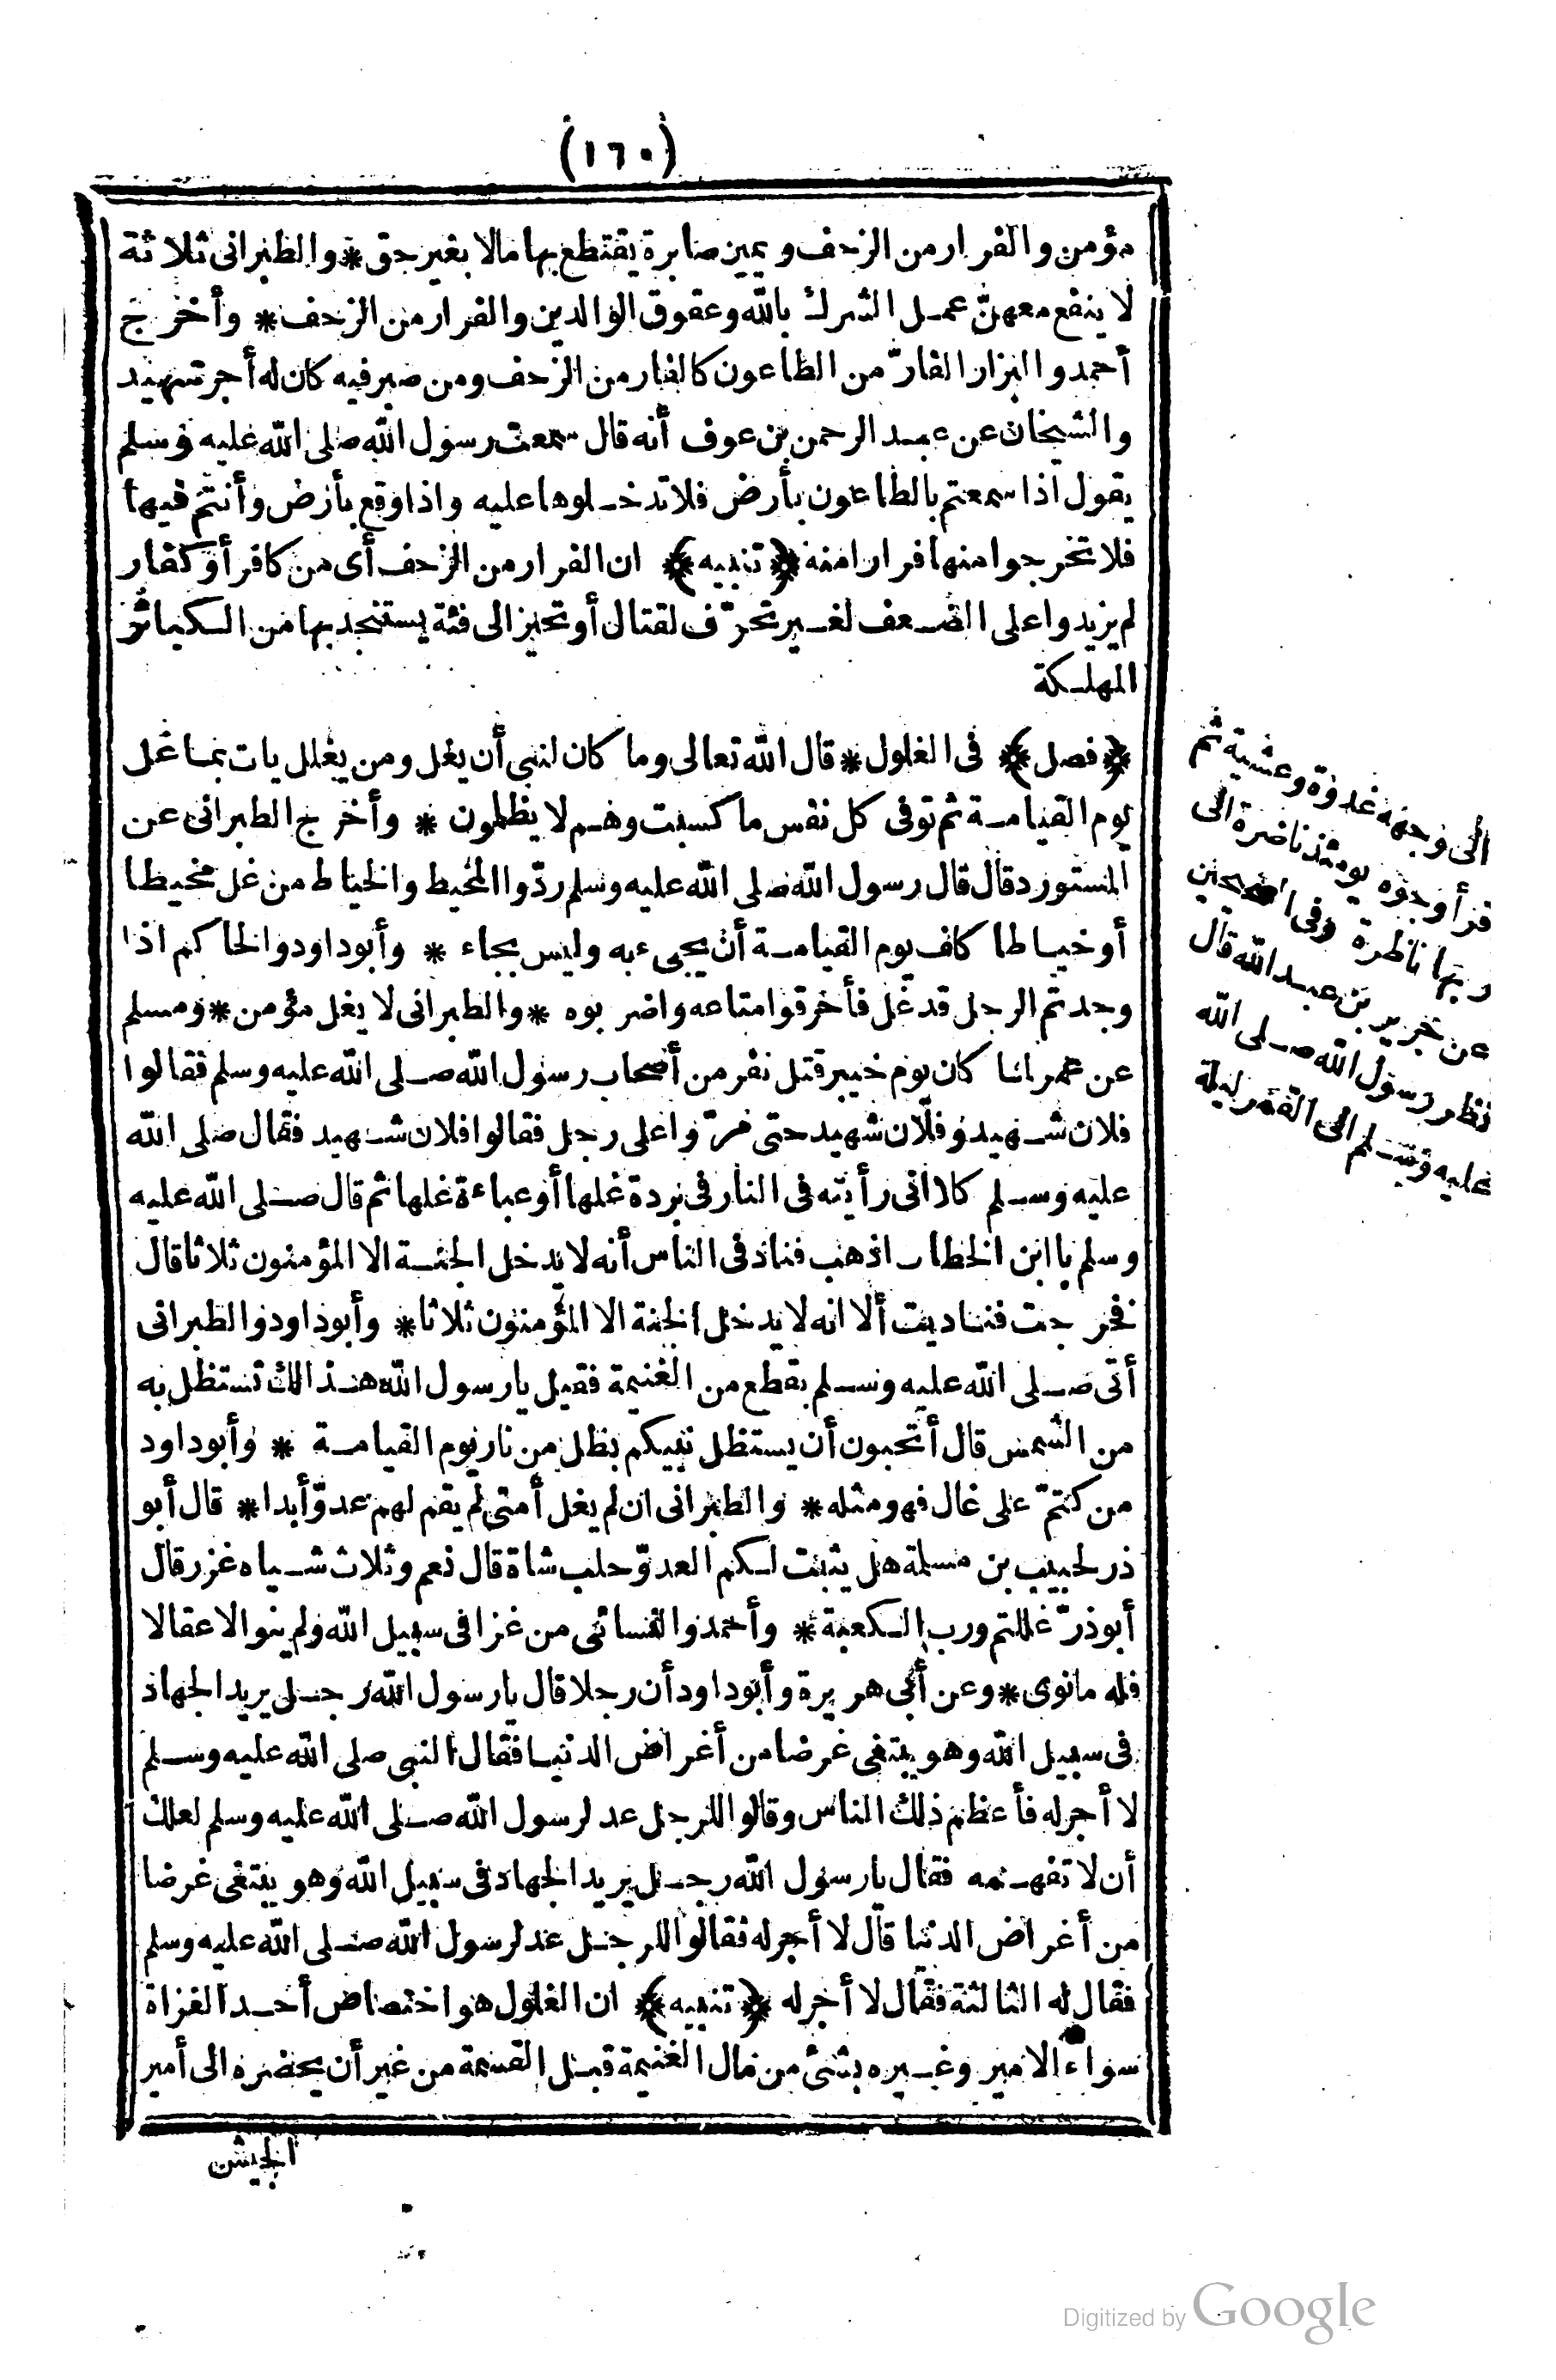 (١٦٠)
مؤمن والفرار من الزحف ويمين صابرة يقتطع بها مالا بغير حق * والطبرانى ثلاثة
لا ينفع معهنّ عمل الشرك بالله وعقوق الوالدين والفرار من الزحف * وأخرج
أحمد والبزار الفارّ من الطاعون كالفار من الزحف ومن صبر فيه كان له أجر شهيد
والشيخان عن عبد الرحمن بن عوف أنه قال سمعت رسول الله صلى الله عليه وسلم
يقول اذا سمعتم بالطاعون بأرض فلا تدخلوها عليه واذا وقع بأرض وأنتم فيها
فلا تخرجوا منها فرارا منه ﴿تنبيه﴾ ان الفرار من الزحف أى من كافر أو كفار
لم يزيدوا على الضعف لغير تحرّف لقتال أو تحيز الى فئة يستنجد بها من الكبائر
المهلكة
﴿فصل﴾ فى الغلول * قال الله تعالى وما كان لنبى أن يغل ومن يغلل يات بما غل
يوم القيامة ثم توفى كل نفس ما كسبت وهم لا يظلمون * وأخرج الطبرانى عن
المستورد قال قال رسول الله صلى الله عليه وسلم ردّوا المخيط والخياط من غل مخيطا
أو خياطا كاف يوم القيامة أن يجىء به وليس بجاء * وأبو داود والحاكم اذا
وجدتم الرجل قد غل فأحرقوا متاعه واضربوه * والطبرانى لا يغل مؤمن * ومسلم
عن عمر لما كان يوم خيبر قتل نفر من أصحاب رسول الله صلى الله عليه وسلم فقالوا
فلان شهيد وفلان شهيد حتى مرّوا على رجل فقالوا فلان شهيد فقال صلى الله
عليه وسلم كلا انى رأيته فى النار فى بردة غلها أو عباءة غلها ثم قال صلى الله عليه
وسلم يا ابن الخطاب اذهب فناد فى الناس أنه لا يدخل الجنة الا المؤمنون ثلاثا قال
فخرجت فناديت ألا انه لا يدخل الجنة الا المؤمنون ثلاثا * وأبو داود والطبرانى
أتى صلى الله عليه وسلم بقطع من الغنيمة فقيل يا رسول الله هذا لك تستظل به
من الشمس قال أتحبون أن يستظل نبيكم بظل من نار يوم القيامة * وأبو داود
من كتم على غال فهو مثله * والطبرانى ان لم يغل أمتى لم يقم لهم عدوّ أبدا * قال أبو
ذر لحبيب بن مسلمة هل يثبت لكم العدوّ حلب شاة قال نعم وثلاث شياه غزر قال
أبو ذرّ غللتم ورب الكعبة * وأحمد والنسائى من غزا فى سبيل الله ولم ينو الا عقالا
فله ما نوى * وعن أبى هريرة وأبو داود أن رجلا قال يا رسول الله رجل يريد الجهاد
فى سبيل الله وهو يبتغى عرضا من أعراض الدنيا فقال النبى صلى الله عليه وسلم
لا أجر له فأعظم ذلك الناس وقالوا للرجل عد لرسول الله صلى الله عليه وسلم لعلك
أن لا تفهمه فقال يا رسول الله رجل يريد الجهاد فى سبيل الله وهو يبتغى عرضا
من أعراض الدنيا قال لا أجر له فقالوا للرجل عد لرسول الله صلى الله عليه وسلم
فقال له الثالثة فقال لا أجر له ﴿تنبيه﴾ ان الغلول هو اختصاص أحد الغزاة
سواء الامير وغيره بشئ من مال الغنيمة قبل القسمة من غير أن يحضره الى أمير
الجيش
الى وجهه غدوة وعشية ثم
قرأ وجوه يومئذ ناضرة الى
ربها ناظرة وفى الصحيحين
عن جرير بن عبد الله قال
نظر رسول الله صلى الله
عليه وسلم الى القمر ليلة
Digitized by Google